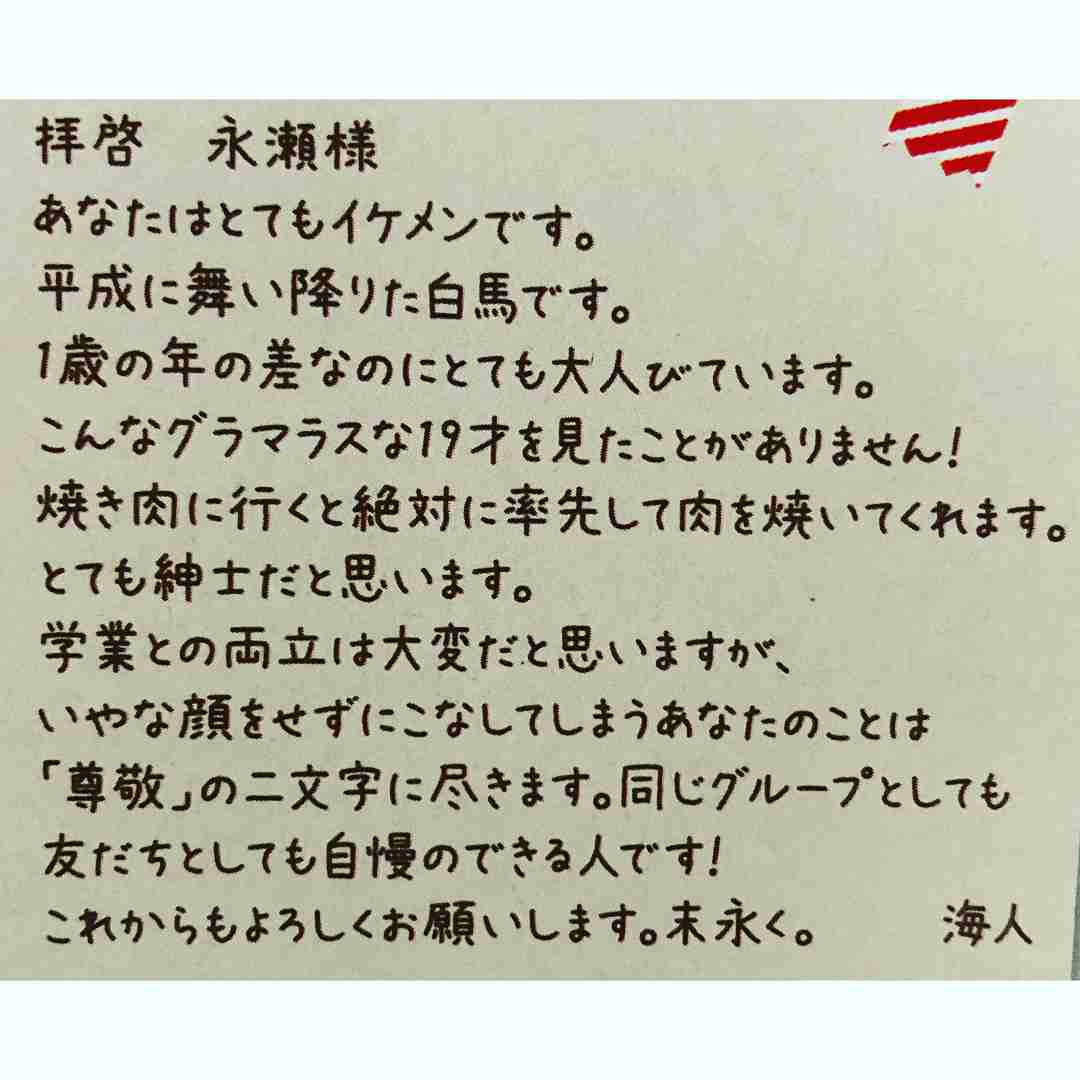 拝啓　永瀬様
あなたはとてもイケメンです。
平成に舞い降りた白馬です。
1歳の年の差なのにとても大人びています。
こんなグラマラスな19才を見たことがありません!
焼き肉に行くと絶対に率先して肉を焼いてくれます。
とても紳士だと思います。
学業との両立は大変だと思いますが、
いやな顔をせずにこなしてしまうあなたのことは
「尊敬」の二文字に尽きます。同じグループとしても
友だちとしても自慢のできる人です!
これからもよろしくお願いします。末永く。　海人